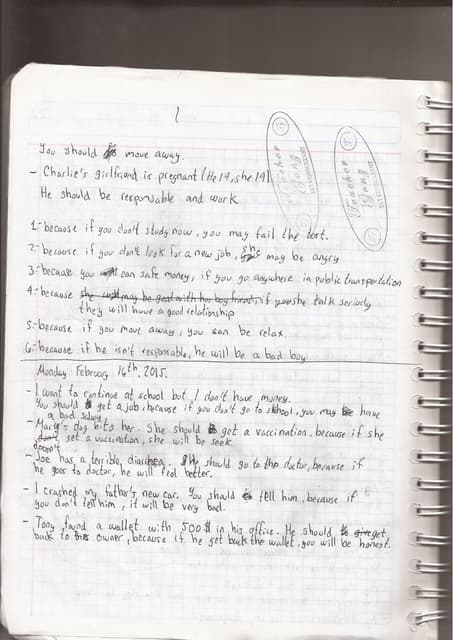 You should move away.
- Charlie's girlfriend is pregnant (He 19, she 19)
He should be responsable and work
1- because if you don't study now, you may fail the test.
2- because if you don't look for a new job, she may be angry
3- because you can safe money, if you go anywhere in public transportation
4- because if she talk seriously
they will have a good relationship
5- because if you move away, you can be relax.
6- because if he isn't responsable, he will be a bad boy
Monday February 16th, 2015.
- I want to continue at school but I don't have money.
You should get a job, because if you don't go to school, you may have
a bad salary
- Mary's dog bits her. She should get a vaccination, because if she
doesn't get a vaccination, she will be seek.
- Joe has a terrible diarrhea. He should go to the doctor, because if
he goes to doctor, he will feel better.
- I crashed my father's new car. You should tell him, because if
you don't tell him, it will be very bad.
- Tony found a wallet with 500$ in his office. He should get
back to the owner, because if he get back the wallet, you will be honest.
Teacher